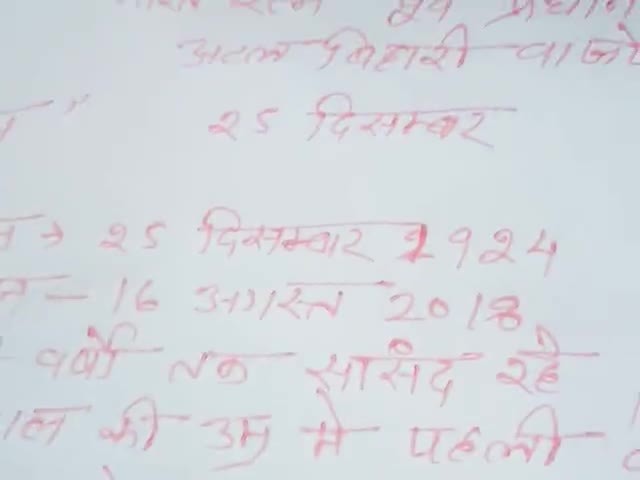 रत्न पूर्व प्रधान
अटल बिहारी वाजपे
"
२५ दिसम्बर
→ २५ दिसम्बर 1924
न - 16 अगस्त 2018
वर्षो तक सांसद रहे
ाल की उम्र मे पहली